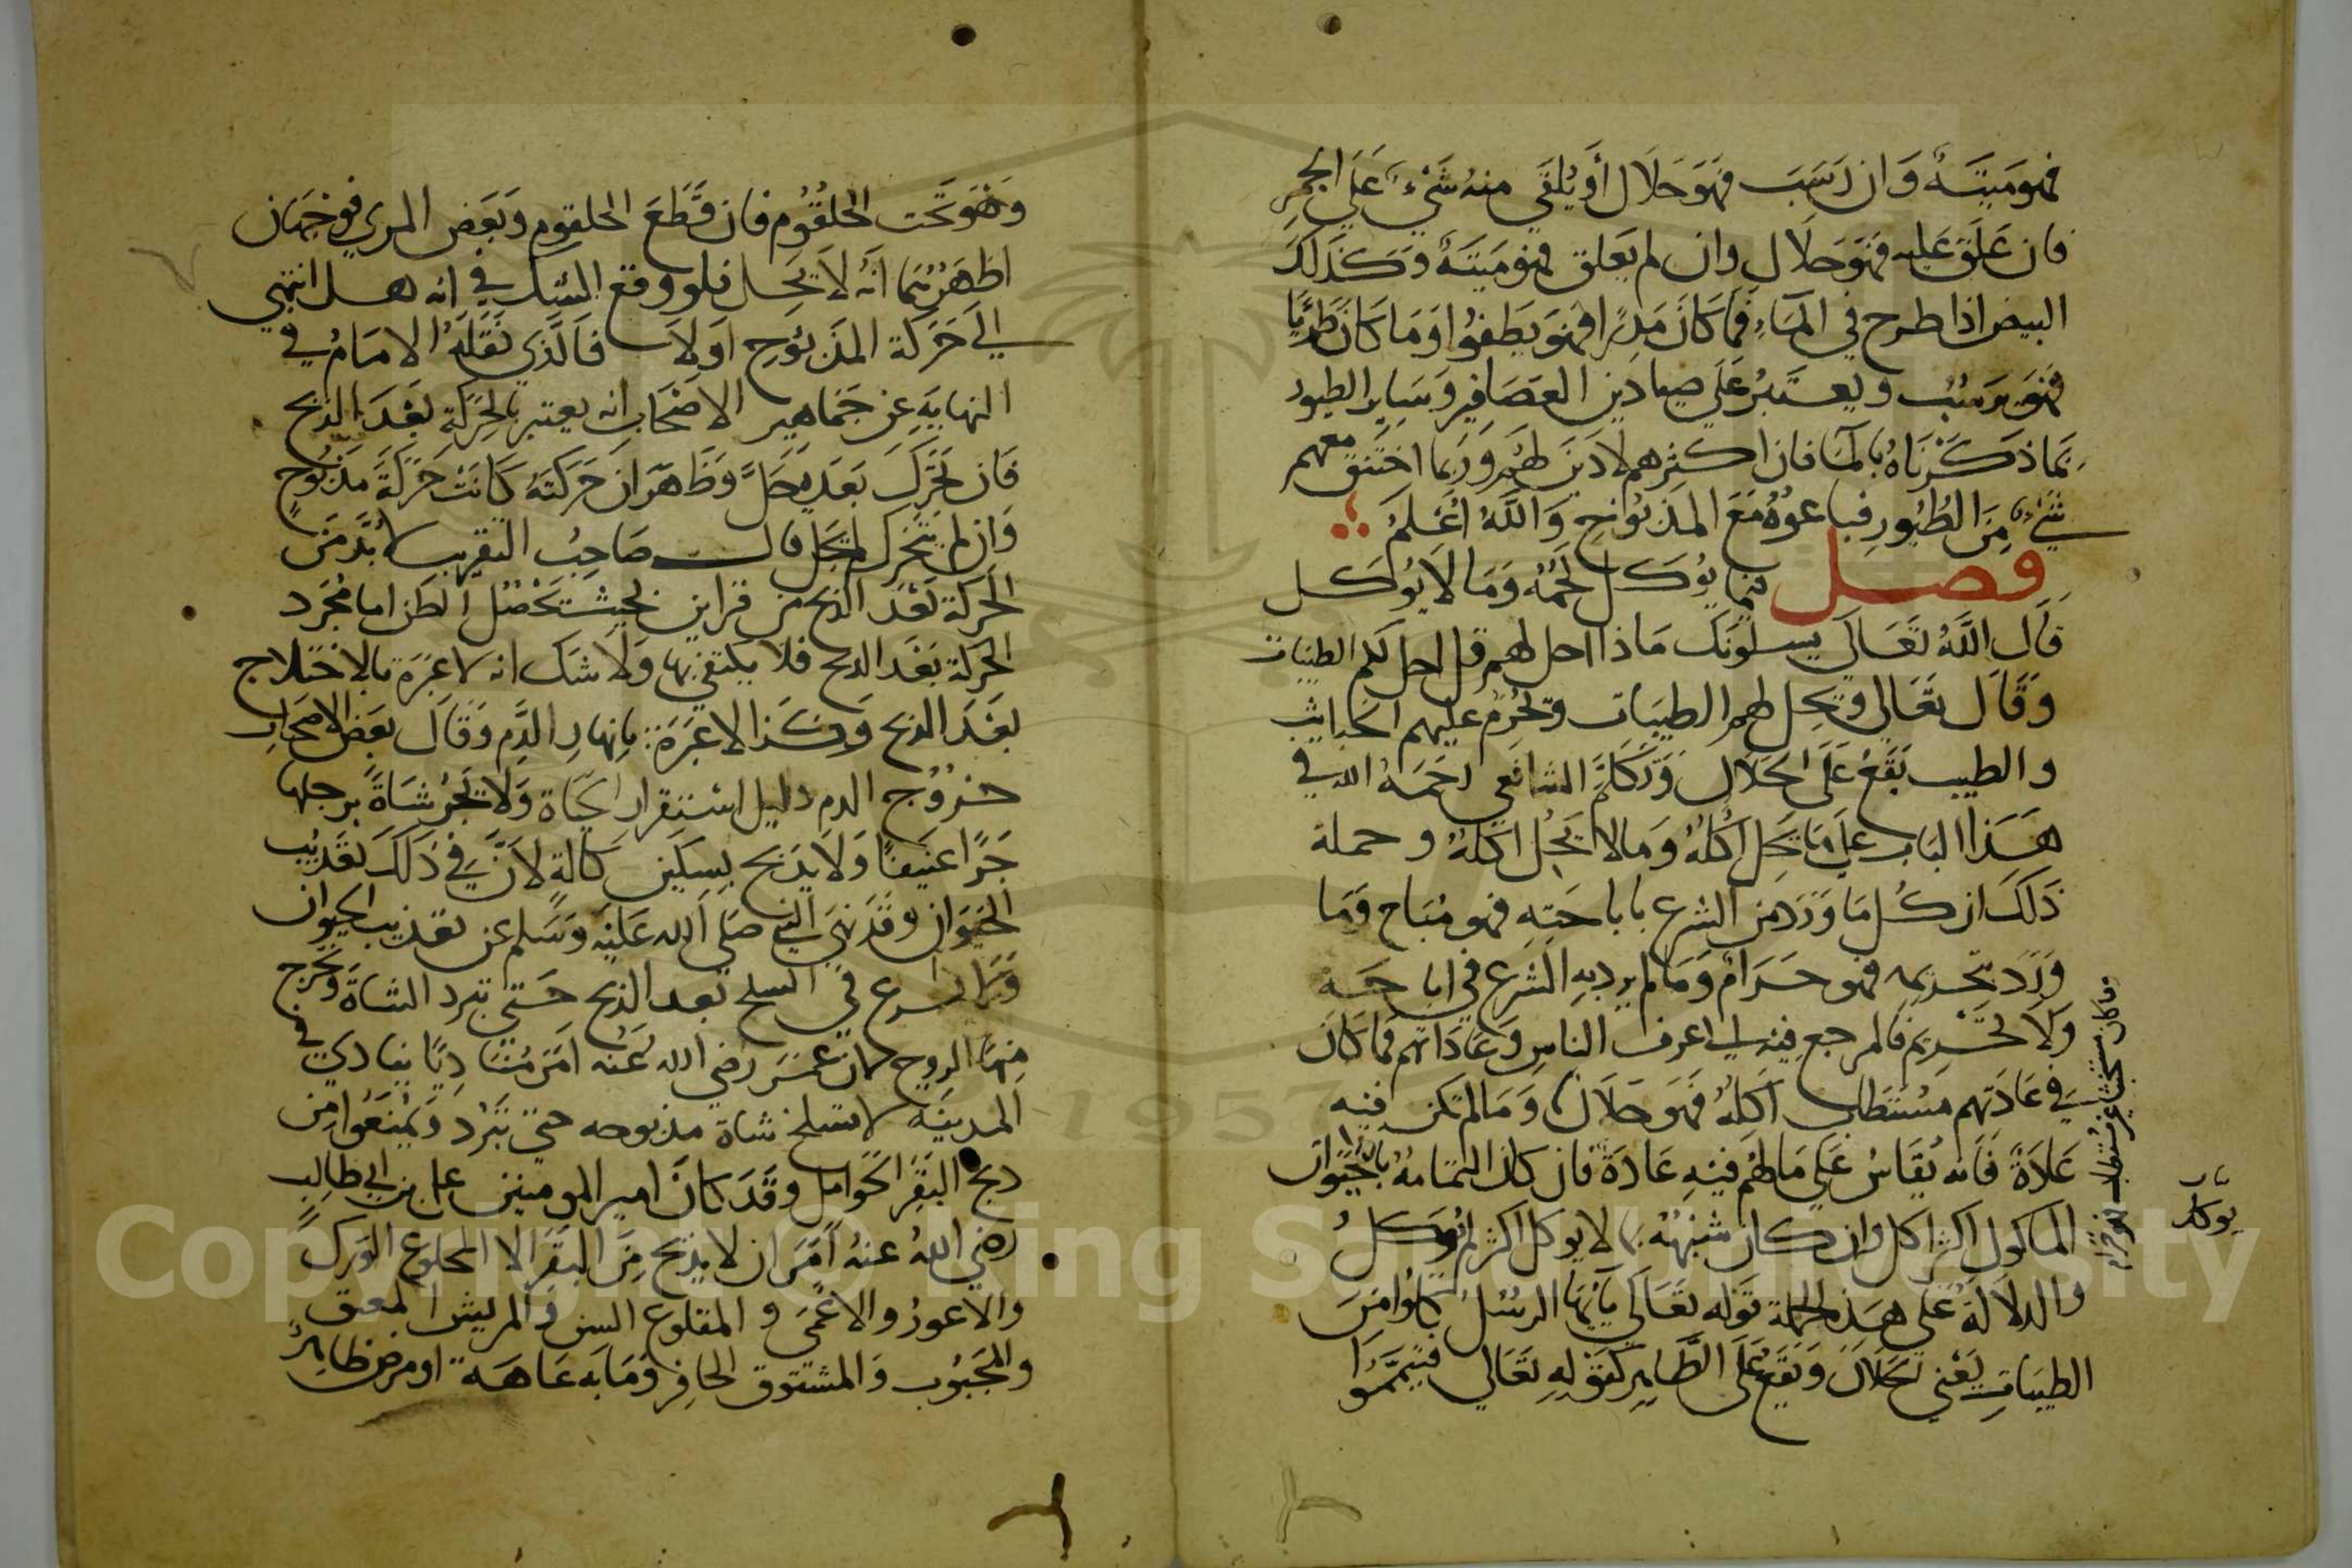 فهو ميتة وان رسب فهو حلال أو يلقي منه شيء علي الجمر
فان علق عليه فهو حلال وان لم يعلق فهو ميتة وكذلك
البيض اذا طرح في الماء فما كان مذرا فهو يطفوا وما كان طريا
فهو يرسب ويعتبر علي صيادين العصافير وساير الطيور
بما ذكرناه بالماء فان اكثرهم لا دين لهم وربما اختنق معهم
شيء من الطيور فباعوه مع المذبوح والله اعلم
فصل فيما يوكل لحمه وما لا يوكل
قال الله تعالي يسلونك ماذا احل لهم قل احل لكم الطيبات
وقال تعالي ويحل لهم الطيبات ويحرم عليهم الخبايث
والطيب يقع علي الحلال وتكلم الشافعي رحمه الله في
هذا الباب علي ما يحل اكله وما لا يحل اكله وجملة
ذلك ان كل ما ورد من الشرع باباحته فهو مباح وما
ورد بتحريمه فهو حرام وما لم يرد به الشرع في اباحه
ولا تحريم فالمرجع فيه الي اعرف الناس وعاداتهم فما كان
في عادتهم مستطاب اكله فهو حلال وما لم تكن فيه
عادة فانه يقاس علي ما لهم فيه عادة فان كان التمامه بالحيوان
الماكول اكثر اكل وان كان شبهه بما لا يوكل اكثر لم يوكل
والدلالة علي هذه الجملة قوله تعالي يايها الرسل كلوا من
الطيبات يعني لحلال ويقع علي الطاهر كقوله تعالي فتيمموا
وما كان مستخبث غير مستطاب فهو حرام
يوكل
وهو تحت الحلقوم فان قطع الحلقوم وبعض المري فوجهان
اظهرهما انه لا يحل فلو وقع الشك في انه هل انتهي
الي حركة المذبوح اولا فالذي نقله الامام في
النهايه عن جماهير الاصحاب انه يعتبر بالحركة بعد الذبح
فان تحرك بعد يحل وظهر ان حركته كانت حركة مذبوح
وان لم يتحرك لم يحل قال صاحب التقريب لا بد من
الحركة بعد الذبح من قراين بحيث تحصل الظن اما مجرد
الحركة بعد الذبح فلا يكتفي بها ولا شك انه لا عبرة بالاختلاج
بعد الذبح وكذا لا عبرة بانهار الدم وقال بعض الاصحاب
خروج الدم دليل استقرار الحياة ولا تجر شاة برجلها
جرا عنيفا ولا يذبح بسكين كالة لان في ذلك تعذيب
الحيوان وقد نهي النبي صلي الله عليه وسلم عن تعذيب الحيوان
في السلخ بعد الذبح حتي تبرد الشاة وتخرج
منها الروح كان عمر رضي الله عنه امر مناديا ينادي في
المدينه لا تسلخ شاة مذبوحه حتي تبرد ويمنعوا من
ذبح البقر الحوامل وقد كان امير المومنين علي بن ابي طالب
رضي الله عنه امر ان لا يذبح من البقر الا المخلوع الورك
والاعور والاعمي و المقلوع السن والمريش المعتق
والمجبوب والمشتوق الحافر وما به عاهة او مرض ظاهر